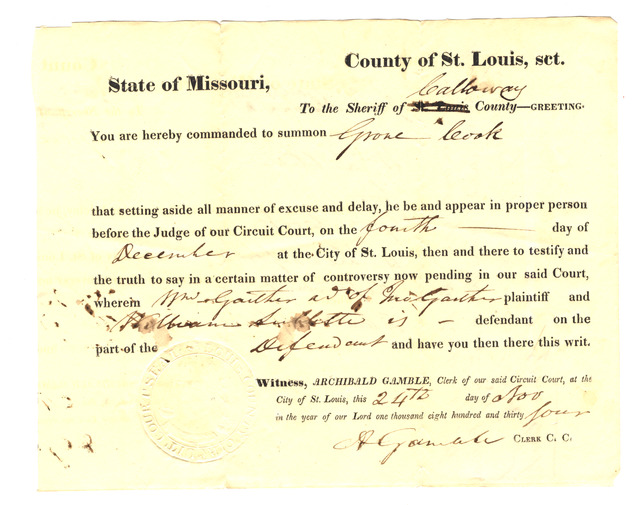 County of St. Louis, sct.
State of Missouri,
Calloway
To the Sheriff of St. Louis County—GREETING.
You are hereby commanded to summon Grove Cook
that setting aside all manner of excuse and delay, he be and appear in proper person
before the Judge of our Circuit Court, on the fourth — day of
December at the City of St. Louis, then and there to testify and
the truth to say in a certain matter of controversy now pending in our said Court,
wherein Wm Gaither ad of Gaither plaintiff and
Sublette is - defendant on the
part of the Defendant and have you then there this writ.
Witness, ARCHIBALD GAMBLE, Clerk of our said Circuit Court, at the
City of St. Louis, this 24th day of Nov
in the year of our Lord one thousand eight hundred and thirty four
A Gamble CLERK C. C.